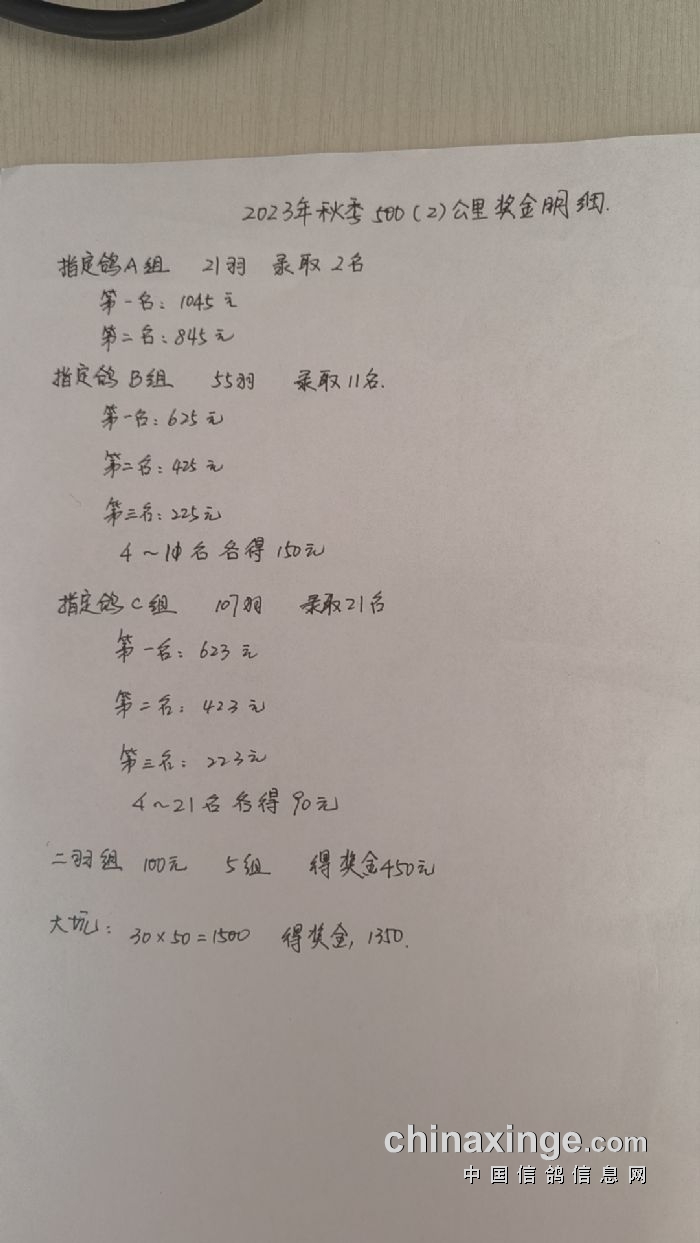 2023年秋季500(2)公里奖金明细.
指定鸽A组 21羽 录取2名
第一名：1045元
第二名：845元
指定鸽B组 55羽 录取11名.
第一名：625元
第二名：425元
第三名：225元
4～11名各得150元
指定鸽C组 107羽 录取21名
第一名：623元
第二名：423元
第三名：223元
4～21名各得90元
二羽组 100元 5组 得奖金450元
大坑：30×50=1500 得奖金，1350.
chinaxinge.com
中国信鸽信息网